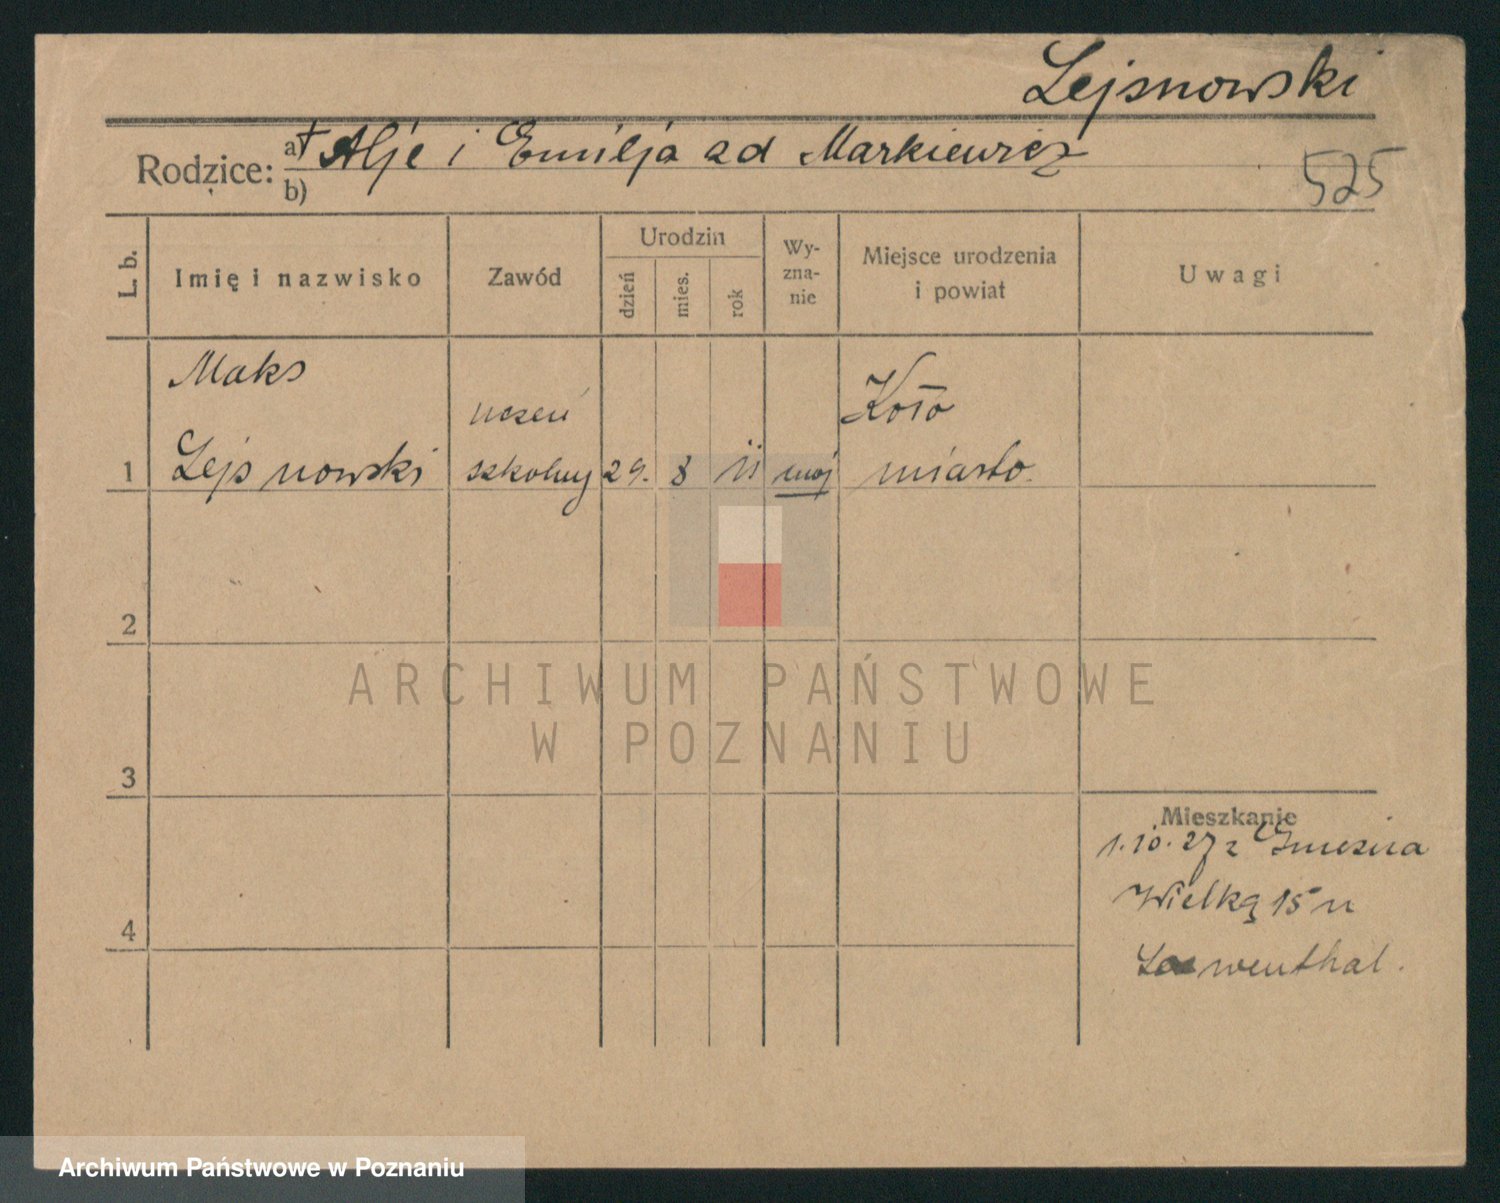 Lejsnowski
Rodzice: a) † Alje i Emilja ad Markiewicz
b)
525
L. b.
Imię i nazwisko
Zawód
Urodzin
dzień
mies.
rok
Wy-
zna-
nie
Miejsce urodzenia
i powiat
Uwagi
Maks
uczeń
Koło
1 Lejsnowski szkolny 29. 8 11 moj miasto.
2
ARCHIWUM PAŃSTWOWE
W POZNANIU
3
Mieszkanie
1.10.27 z Gniezna
4 Wielką 15 u
Loewenthal.
Archiwum Państwowe w Poznaniu